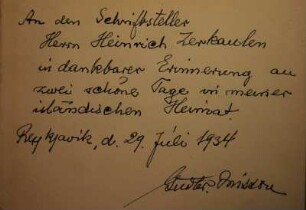 An den Schriftsteller
Herrn Heinrich Zerkaulen
in dankbarer Erinnerung an
zwei schöne Tage in meiner
isländischen Heimat.
Reykjavik, d. 29. Juli 1934